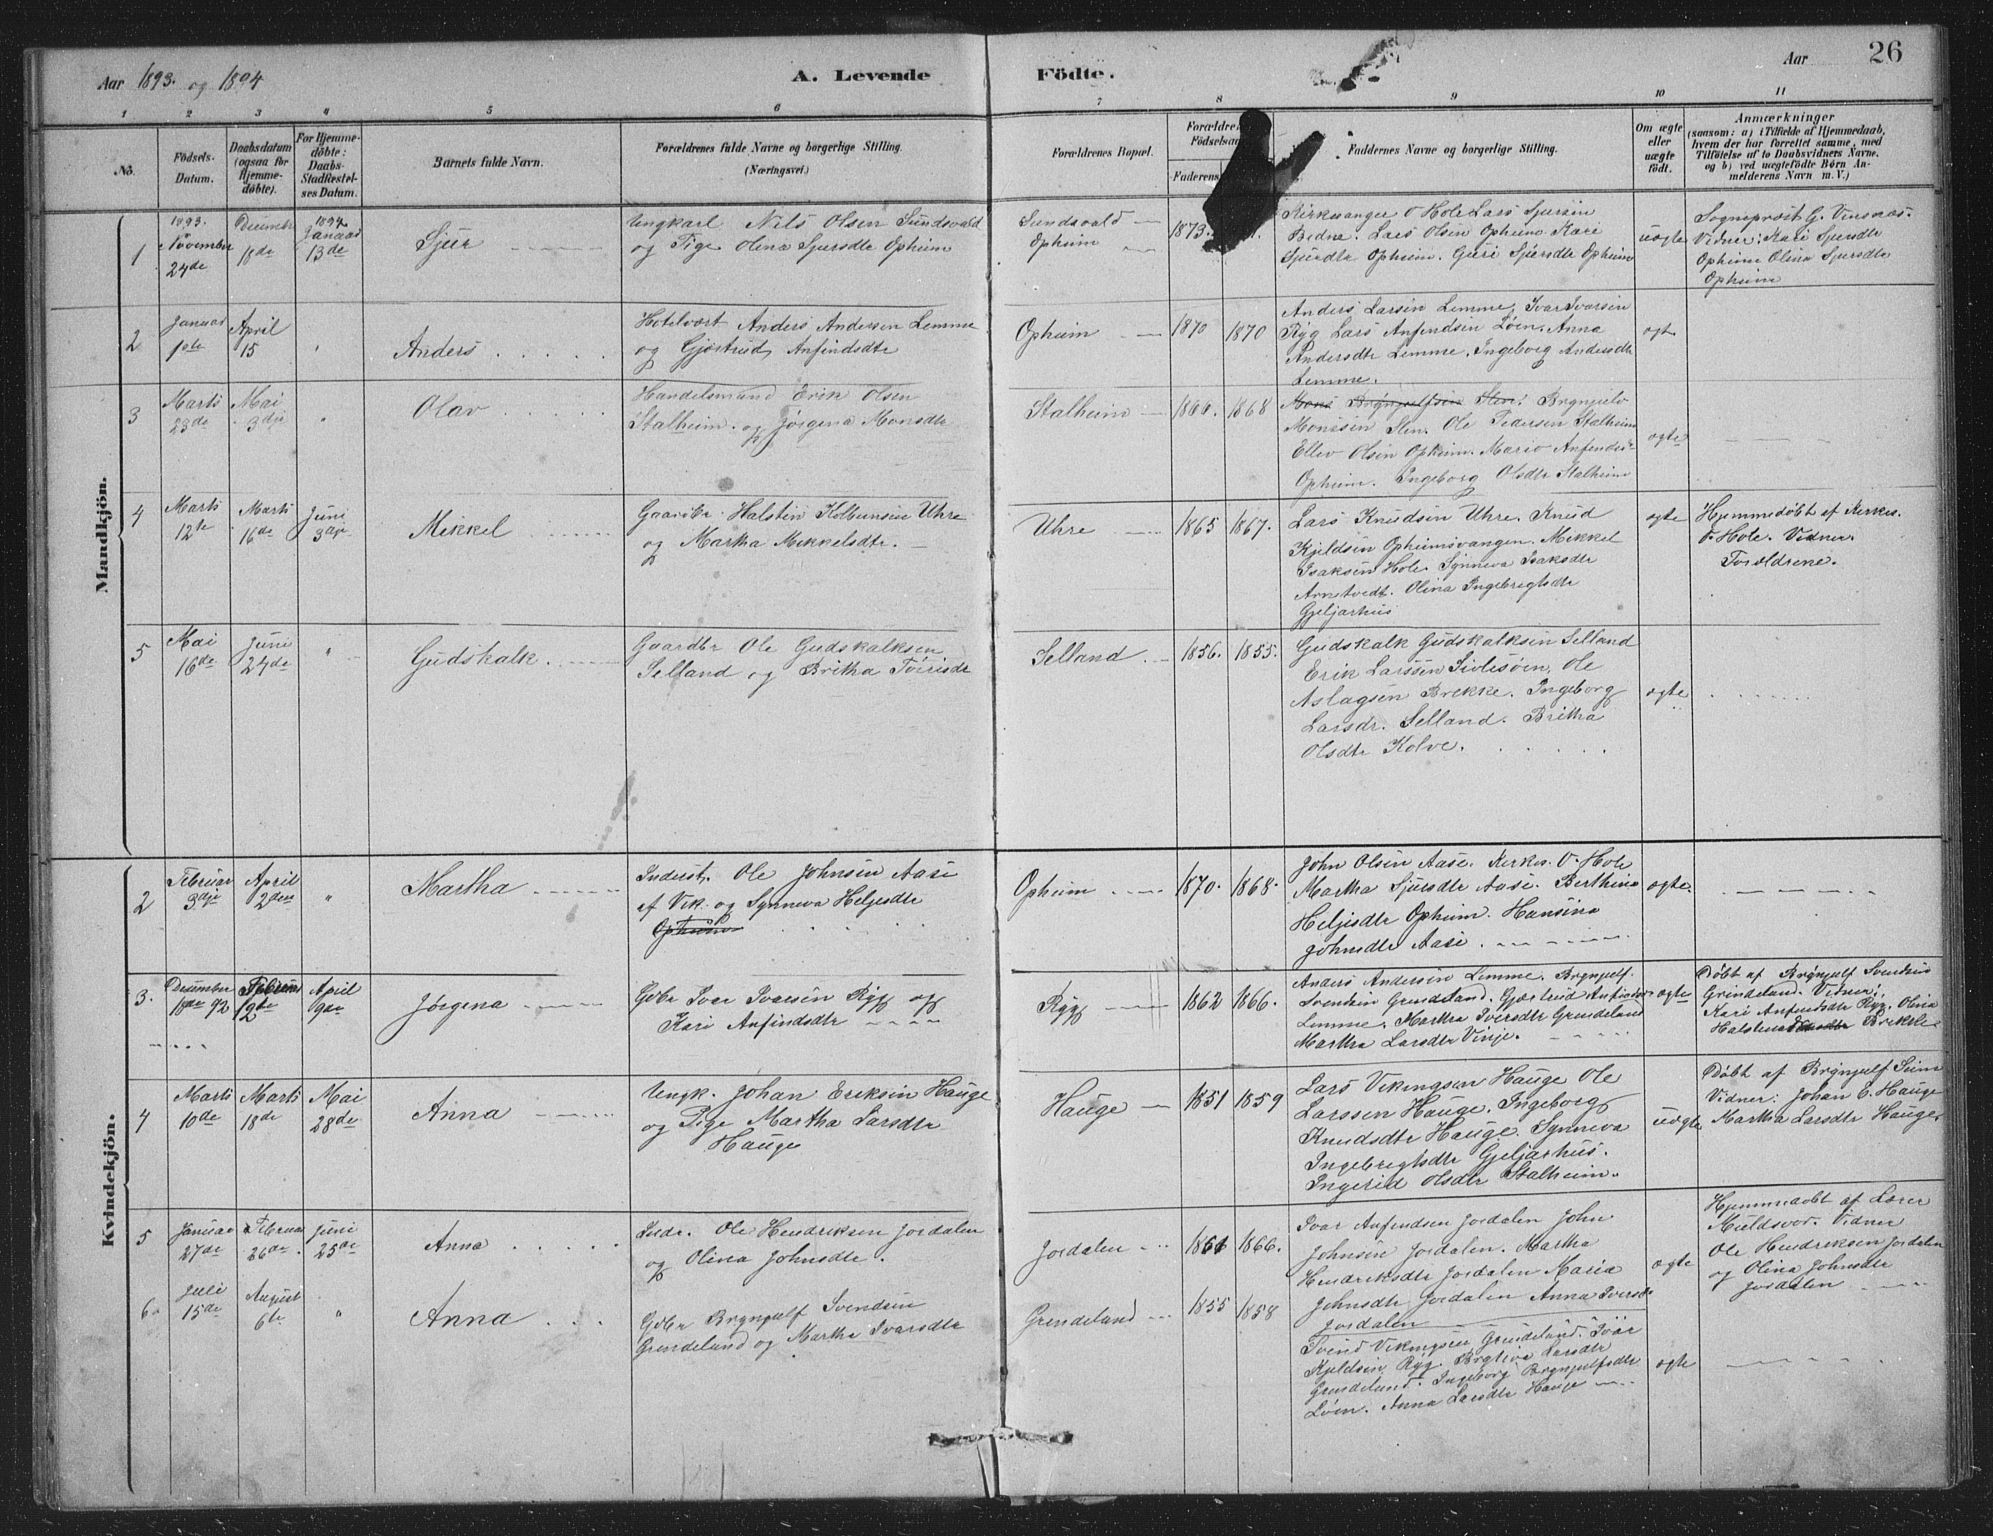 Aar 1893. og 1894
A. Levende Födte.
Aar 26
1 2 3 4 5 6 7 8 9 10 11
No.
Födsels-
Datum.
Daabsdatum
(ogsaa for
Hjemme-
döbte).
For Hjemme-
döbte:
Daabs-
Stadfæstel-
ses Datum.
Barnets fulde Navn.
Forældrenes fulde Navne og borgerlige Stilling.
(Næringsvei.)
Forældrenes Bopæl.
Forældren
Födselsaa
Faderens
Faddernes Navne og borgerlige Stilling.
Om ægte
eller
uægte
födt.
Anmærkninger
(saasom: a) i Tilfælde af Hjemmedaab,
hvem der har forrettet samme, med
Tilföielse af to Daabsvidners Navne,
og b) ved uægtefödte Børn An-
melderens Navn m. V.)
Mandkjön.
1
1893.
November
24de
18de
1894
Januar
13de
Sjur
Ungkarl Nils Olsen Sundsvald
og Pige Olina Sjursdtr Opheim
Sundsvald
Opheim
1873.
Kirkesanger O Hole Lars Sjursen
Lars Olsen Opheim Kari
Sjursdtr Opheim. Guri Sjursdtr Opheim
uægte
Sogneprest G.
Vidner: Kari Sjursdtr
Opheim Olina Sjursdtr
Opheim
2
Januar
1ste
April
15
"
Anders
Hotelvært Anders Andersen Lemme
og Gjertrud Anfindsdtr
Opheim
1870
1870
Anders Larsen Lemme, Ivar Ivarsen
Ryg Lars Anfendsen Løen. Anna
Andersdtr Lemme. Ingeborg Andersdtr
Lemme.
ægte
3
Marts
23de
Mai
3dje
"
Olav
Handelsmand Erik Olsen
Stalheim. og Jørgena Monsdtr
Stalheim
1866.
1868
Mons Brynjulfsen Slen: Brynjulv
Monssen Slen. Ole Pedersen Stalheim
Ellev Olsen Opheim. Opheim. Ingeborg Olsdtr Stalheim
ægte
4
Marts
12te
Marts
16de
Juni
3die
Mikkel
Gaardbr. Halsten Kolbensen Uhre
og Martha Mikkelsdtr.
Uhre
1865
1867.
Lars Knudsen Uhre. Knud
Kjeldsen Opheimsvangen. Mikkel
Isaksen Hole. Synneva Isaksdtr
Arnetvedt. Olina Ingebrigtsdtr
Gjeljarhus
ægte
Hjemmedøbt af Kirkes.
O Hole. Vidner.
Foreldrene.
5
Mai
16de
Juni
24de
"
Gudskalk
Gaardbr Ole Gudskalksen
Selland og Britha
Selland
1856.
1855.
Gudskalk Gudskalksen Selland
Erik Larssen Sivlesøen, Ole
Aslagsen Brekke. Ingeborg
Larsdr. Selland. Britha
Olsdtr Kolve.
ægte
Kvindekjön.
2
Februar
3dje
April
2den
"
Martha
Inderst. Ole Johnsen Aase
af Vik. og Synneva Heljesdtr
Opheim
Opheim
1870.
1868.
John Olsen Aase. Kirkes. O. Hole
Martha Sjursdtr Aase. Berthina
Heljesdtr Opheim. Hansina
Johnsdtr Aase.
ægte.
3.
December
18de 92
Februar
April
9de
Jørgena
Gdbr Ivar Ivarsen Rygg og
Kari Anfindsdtr
Rygg
1862
1866.
Anders Andersen Lemme. Brynjulf.
Svendsen Grendeland. Gjertrud
Lemme. Martha Iversdtr Grendeland
Martha Larsdtr Vinje.
ægte
Døbt af Brynjulf Svendsen
Grindeland. Vidner:
Kari Anfindsdtr Ryg, Olina
Brekke
4
Marts
10de
Marts
18de
Mai
28de
Anna
Ungk. Johan Eriksen Hauge
og Pige Martha Larsdtr
Hauge
Hauge
1851
1859
Lars Vikingsen Hauge Ole
Larssen Hauge. Ingeborg
Knudsdtr Hauge. Synneva
Ingebregtsdtr Gjeljarhus.
Ingerid Olsdtr Stalheim.
uægte
Døbt af Brynjulf Seim
Vidner: Johan E. Hauge
Martha Larsdtr Hauge.
5
Januar
27de
Februar
26de
Juni
25de
Anna
Ole Hendriksen Jordalen
og Olina Johnsdtr.
Jordalen
1861
1866.
Ivar Anfendsen Jordalen John
Johnsen Jordalen. Martha
Hendriksdtr Jordalen Maria
Johnsdtr Jordalen Anna Iversdr
Jordalen
ægte
Hjemmedøbt af Lærer
Muldsvor. Vidner
Ole Hendriksen Jordalen
og Olina Johnsdtr
Jordalen
6.
Juli
15de
August
6te
"
Anna
Gdbr Brynjulf Svendsen
Grendeland og Martha Ivarsdtr
Grendeland
1855
1858
Svend Vikingsen Grendeland. Ivar
Kjeldsen Ryg. Larsdtr
Grendeland. Ingeborg Brynjulfsdtr
Løen. Anna Larsdtr Hauge
ægte